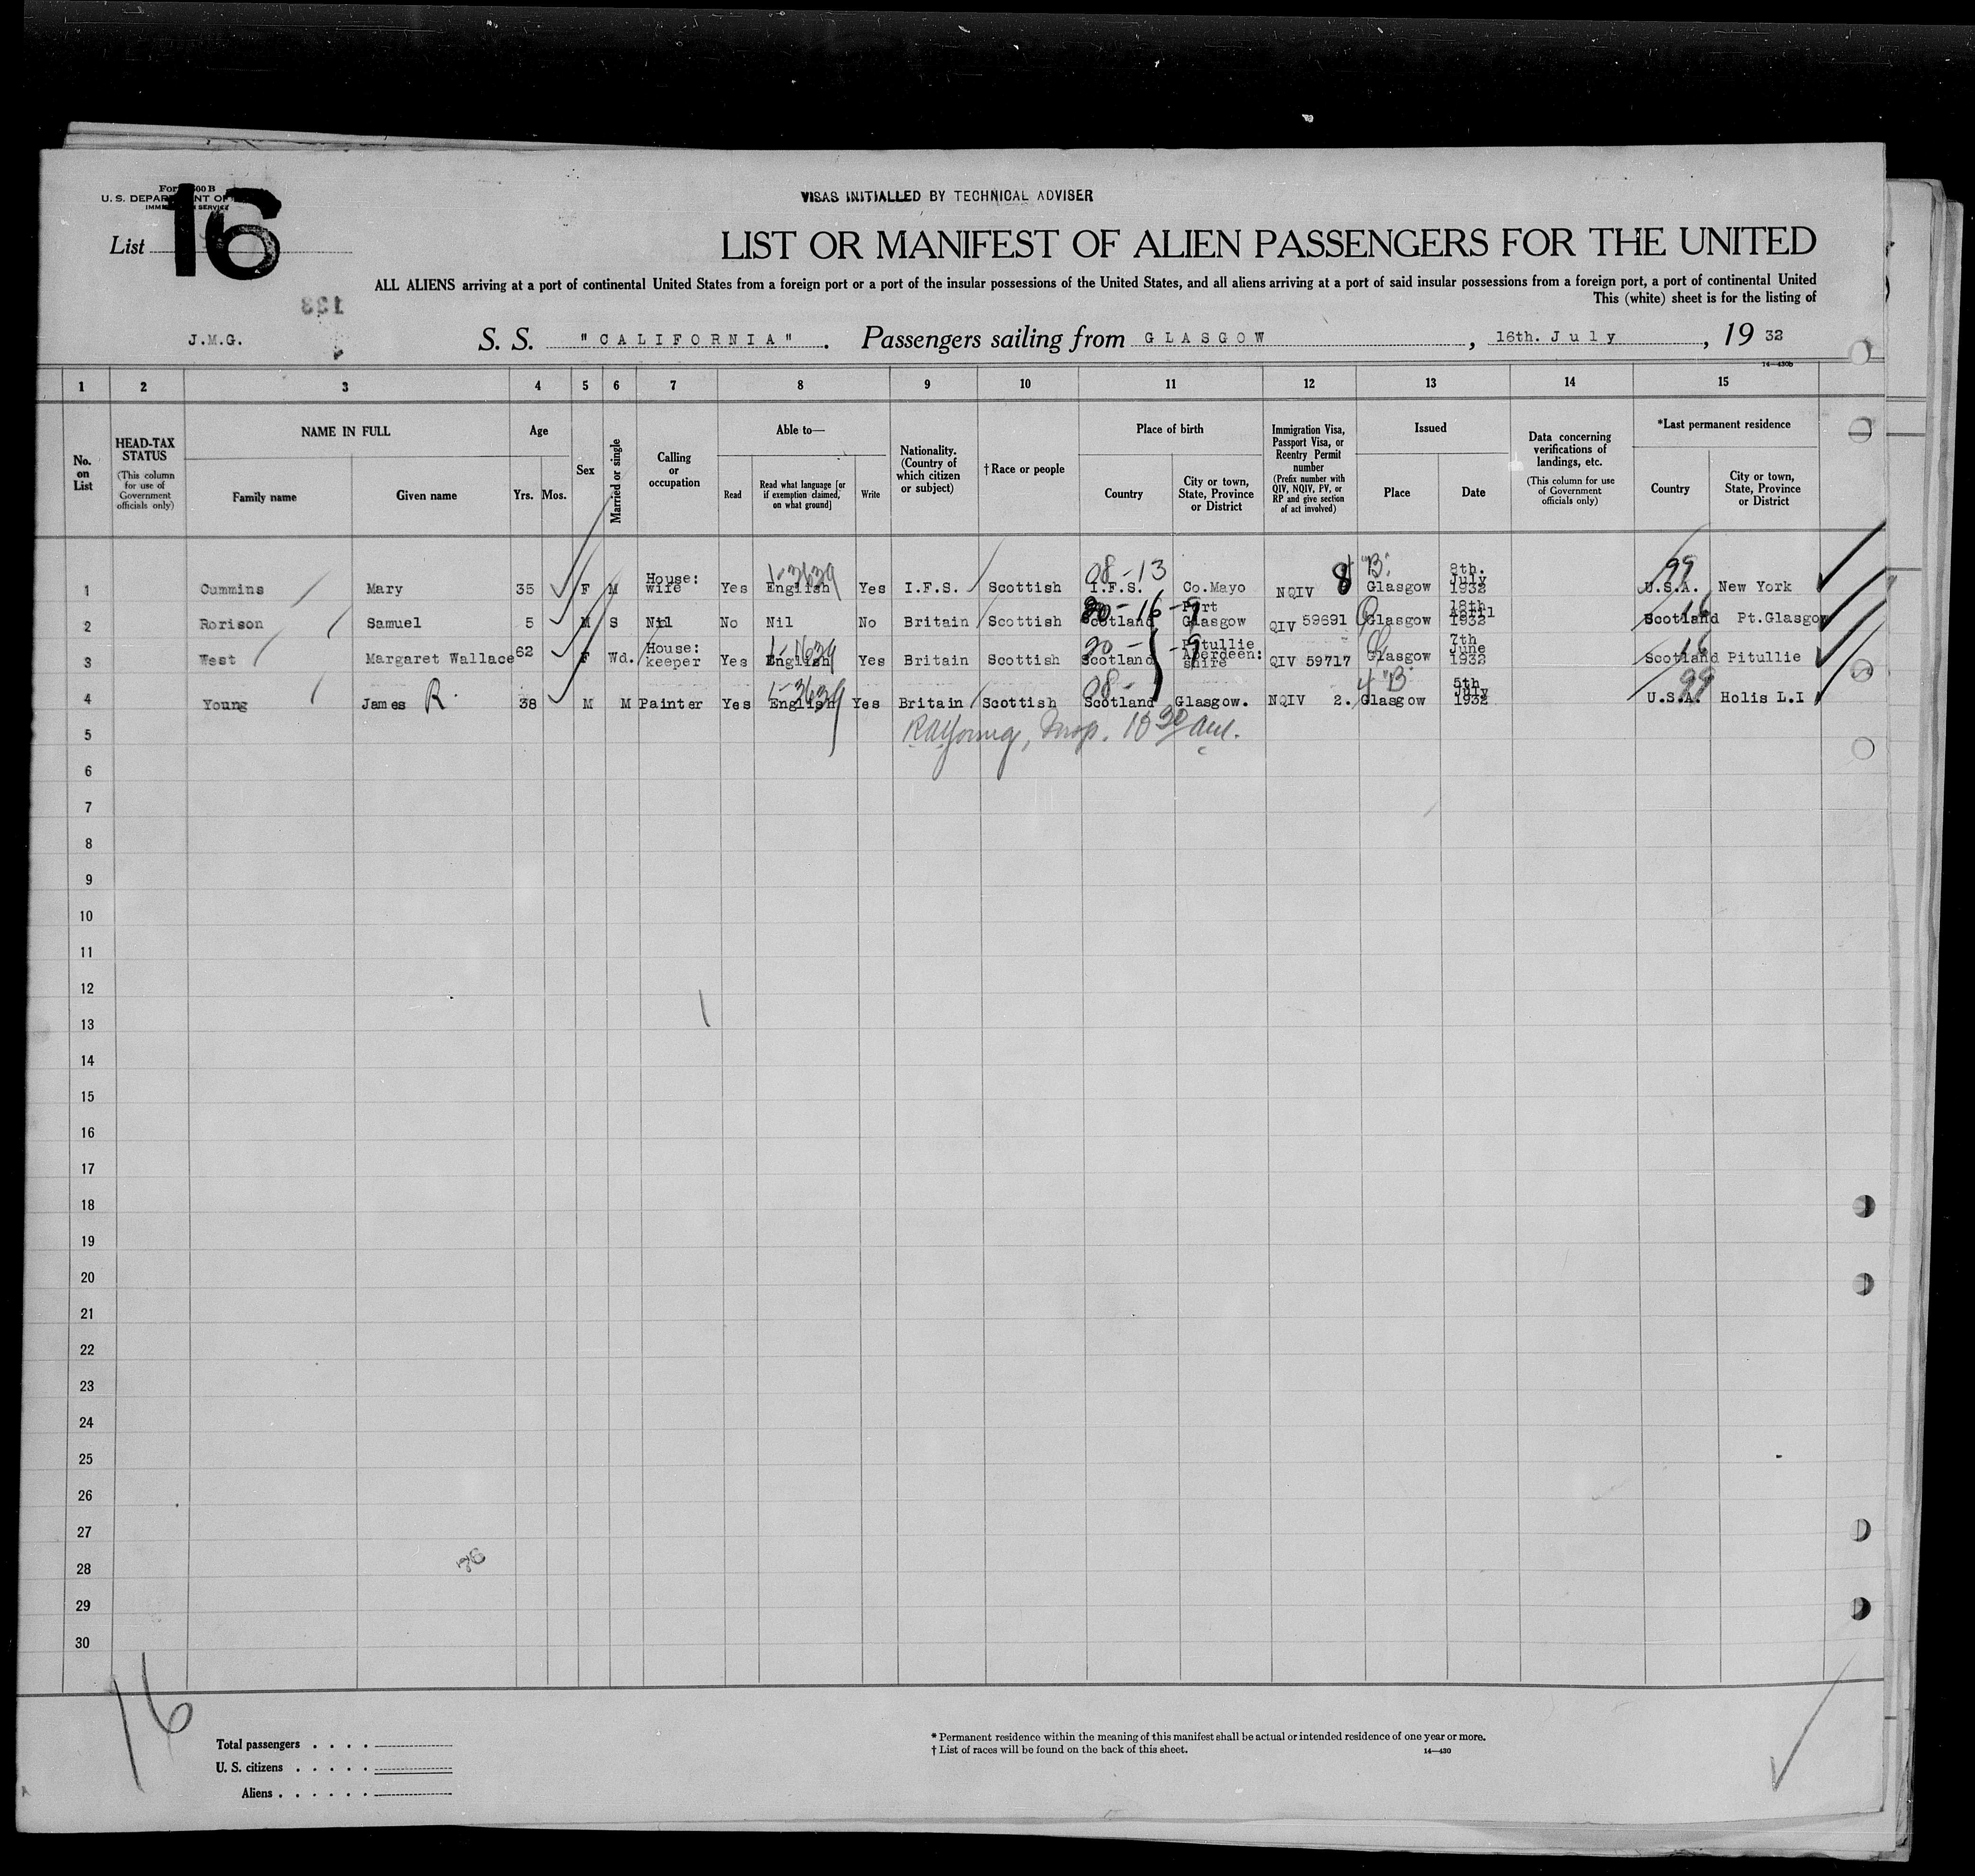 VISAS INITIALLED BY TECHNICAL ADVISER
U. S. DEPARTMENT OF
List 16
LIST OR MANIFEST OF ALIEN PASSENGERS FOR THE UNITED
ALL ALIENS arriving at a port of continental United States from a foreign port or a port of the insular possessions of the United States, and all aliens arriving at a port of said insular possessions from a foreign port, a port of continental United
This (white) sheet is for the listing of
133
J.M.G. S. S. "CALIFORNIA". Passengers sailing from GLASGOW, 16th. July, 19 32
14—430b
1 2 3 4 5 6 7 8 9 10 11 12 13 14 15
No. on List
HEAD-TAX STATUS
(This column for use of Government officials only)
NAME IN FULL
Family name
Given name
Age
Yrs. Mos.
Sex
Married or single
Calling or occupation
Able to—
Read
Read what language [or if exemption claimed, on what ground]
Write
Nationality. (Country of which citizen or subject)
†Race or people
Place of birth
Country
City or town, State, Province or District
Immigration Visa, Passport Visa, or Reentry Permit number
(Prefix number with QIV, NQIV, PV, or RP and give section of act involved)
Issued
Place
Date
Data concerning verifications of landings, etc.
(This column for use of Government officials only)
*Last permanent residence
Country
City or town, State, Province or District
1 Cummins Mary 35 F M House: wife Yes English Yes I.F.S. Scottish I.F.S. Co.Mayo NQIV 8 Glasgow 8th. July 1932 U.S.A. New York
2 Rorison Samuel 5 M S Nil No Nil No Britain Scottish Scotland Port Glasgow QIV 59691 Glasgow 18th April 1932 Scotland Pt.Glasgow
3 West Margaret Wallace 62 F Wd. House: keeper Yes English Yes Britain Scottish Scotland Pitullie Aberdeen: shire QIV 59717 Glasgow 7th June 1932 Scotland Pitullie
4 Young James R. 38 M M Painter Yes English Yes Britain Scottish Scotland Glasgow. NQIV 2. Glasgow 5th July 1932 U.S.A. Holis L.I
5
6
7
8
9
10
11
12
13
14
15
16
17
18
19
20
21
22
23
24
25
26
27
28
29
30
16
Total passengers
U. S. citizens
Aliens
* Permanent residence within the meaning of this manifest shall be actual or intended residence of one year or more.
† List of races will be found on the back of this sheet. 14—430